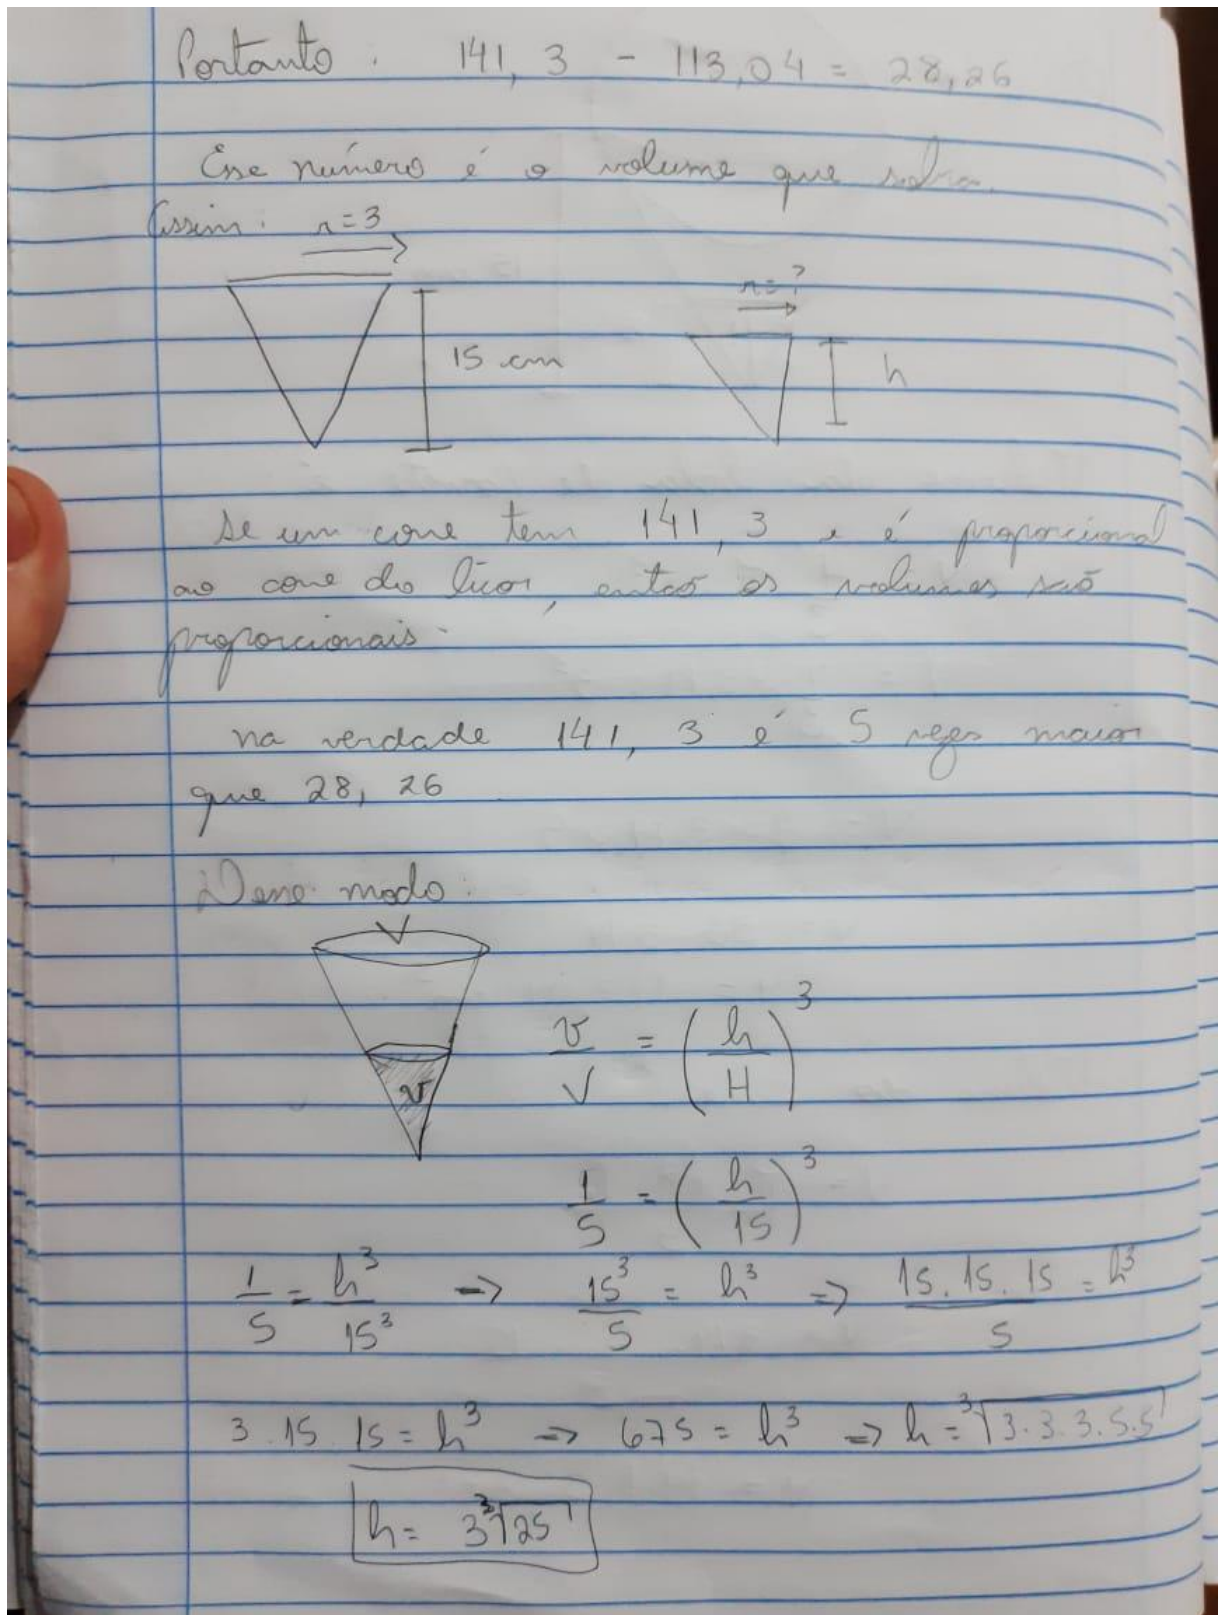 Portanto : 141, 3 - 113,04 = 28,26
Esse número é o volume que sobra.
Assim: r=3
r=?
15 cm
h
Se um cone tem 141, 3 e é proporcional
ao cone do licor, então os volumes são
proporcionais.
na verdade 141, 3 é 5 vezes maior
que 28, 26
Desse modo:
V
v
v/V = (h/H)³
1/5 = (h/15)³
1/5 = h³/15³ → 15³/5 = h³ ⇒ 15.15.15/5 = h³
3.15.15 = h³ ⇒ 675 = h³ ⇒ h = ³√3.3.3.5.5
h = 3³√25